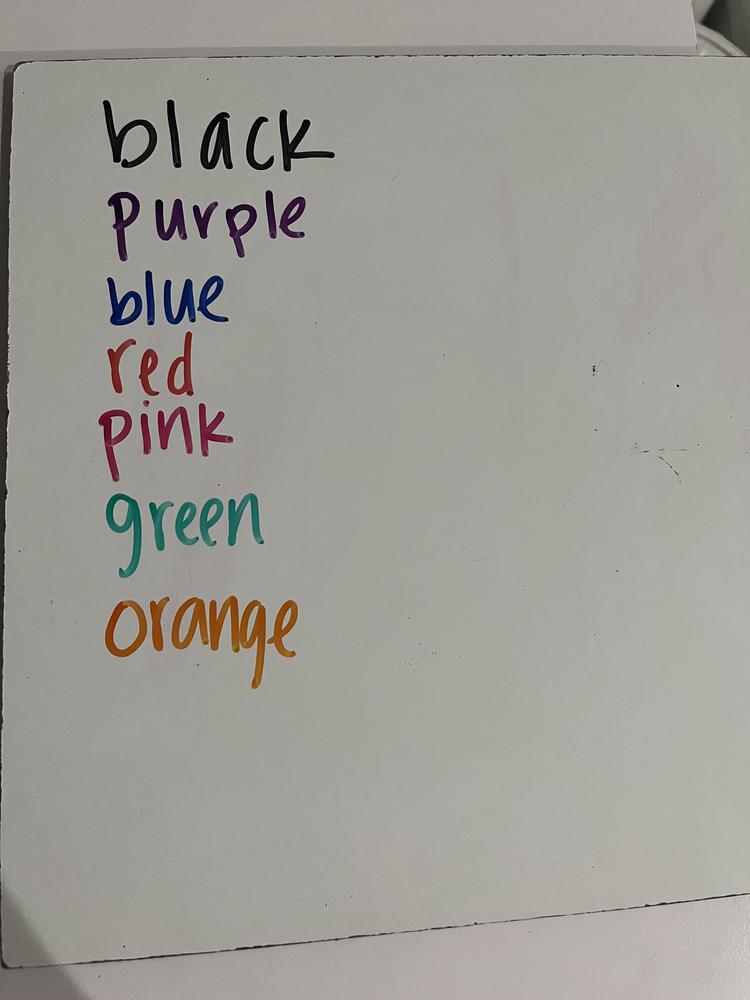 black
purple
blue
red
pink
green
orange